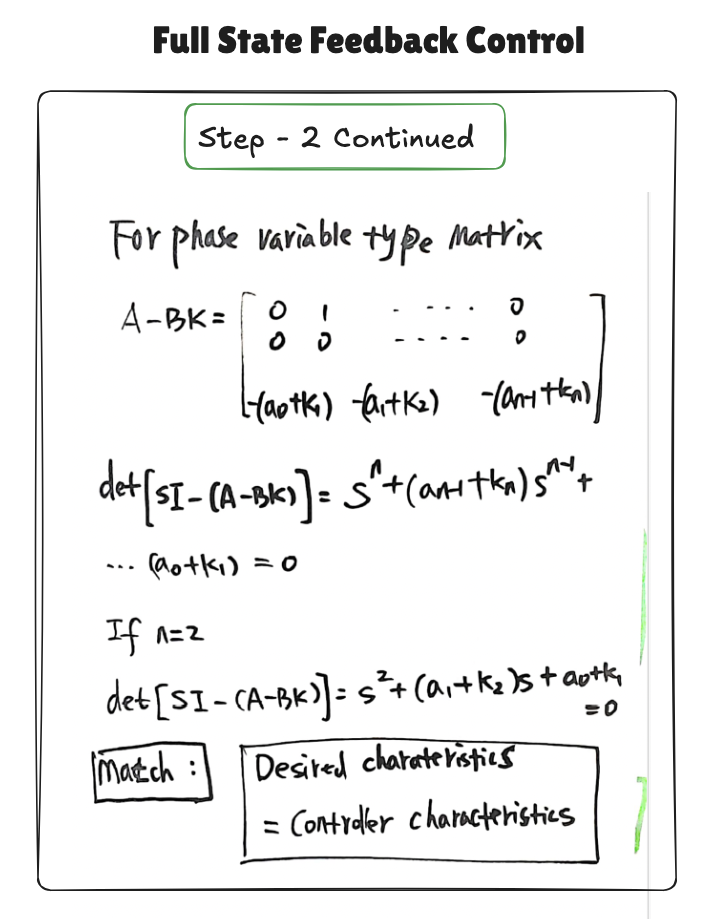 Full State Feedback Control
Step - 2 Continued
For phase variable type Matrix
A-BK = [ 0 1 . . . . 0
0 0 - - - - 0
-(a0+k1) -(a1+k2) -(an-1+kn) ]
det[SI-(A-BK)] = S^n+(an-1+kn)S^n-1+
... (a0+k1) = 0
If n=2
det[SI-(A-BK)] = s^2+(a1+k2)s+a0+k1
=0
Match :
Desired charateristics
= Controller characteristics